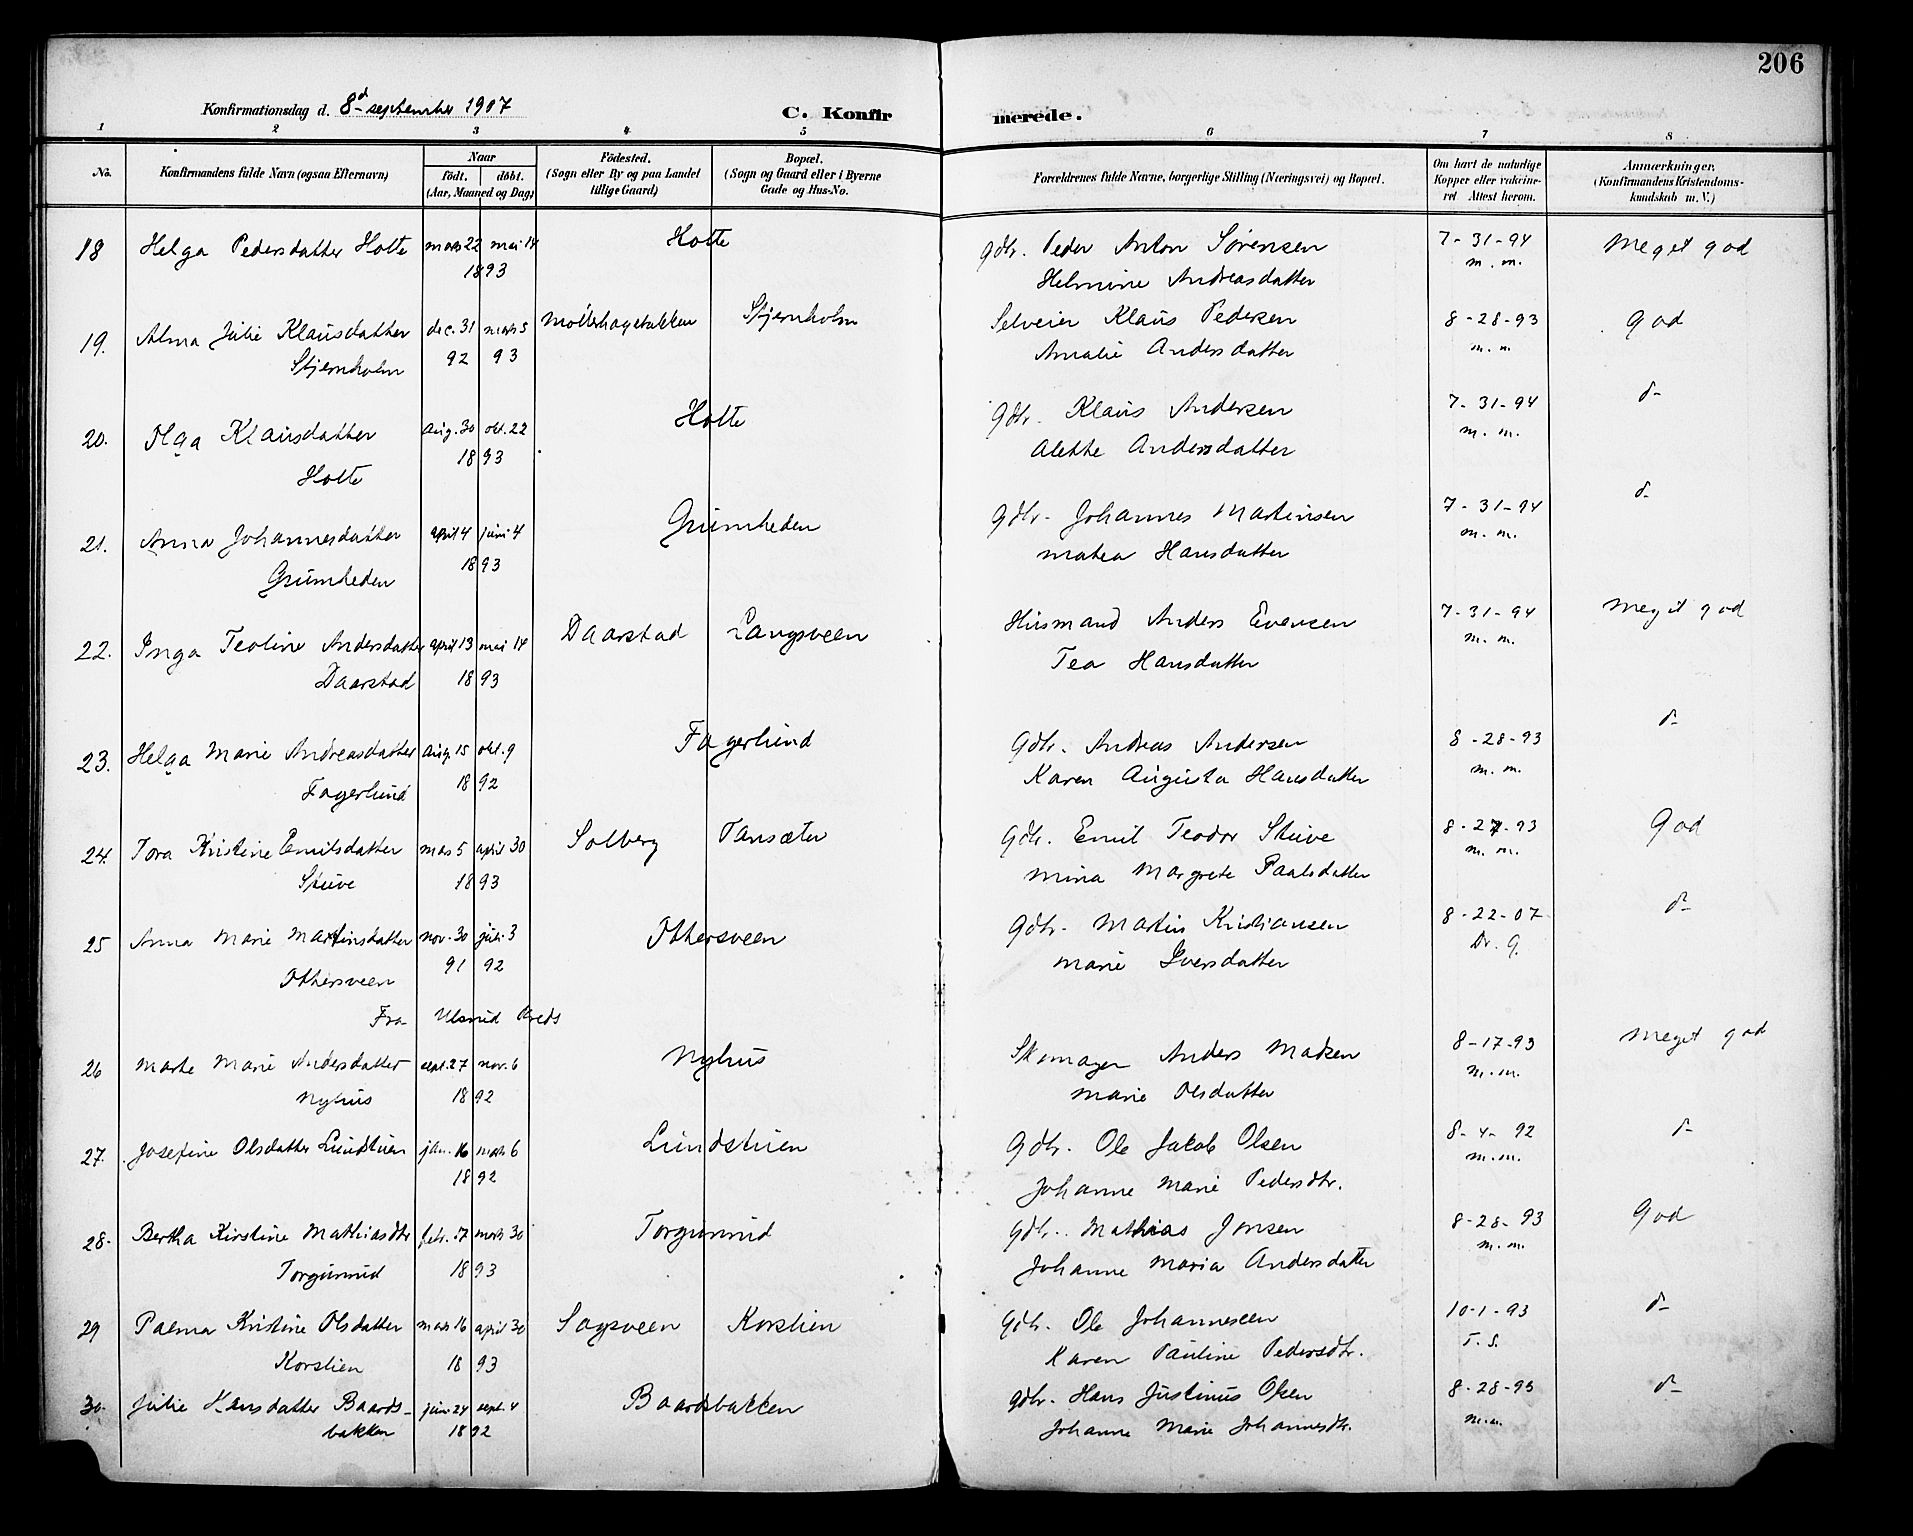 206
Konfirmationsdag d. 8d september 1907
C. Konfirmerede.
1 2 3 4 5 6 7 8
No.
Konfirmandens fulde Navn (ogsaa Efternavn)
Naar
født. døbt.
(Aar, Maaned og Dag)
Fødested.
(Sogn eller By og paa Landet
tillige Gaard)
Bopæl.
(Sogn og Gaard eller i Byerne
Gade og Hus-No.
Forældrenes fulde Navne, borgerlige Stilling (Næringsvei) og Bopæl.
Om havt de naturlige
Kopper eller vaccine-
ret Attest herom.
Anmærkninger,
(Konfirmandens Kristendoms-
kundskab m. V.)
18 Helga Pedersdatter Holte mars 22 mai 14 Holte Gdbr. Peder Anton Sørensen 7-31-94 Meget god
1893 Helmine Andreasdatter m. m.
19. Alma Julie Klausdatter dec. 31 mars 5 Stjernholm Selveier Klaus Pedersen 8-28-93 God
Stjernholm 92 93 Amalie Andersdatter m. m.
20. Olga Klausdatter aug. 30 okt. 22 Holte Gdbr. Klaus Andersen 7-31-94 d-
Holte 1893 Alette Andersdatter m. m.
21. Anna Johannesdatter april 4 juni 4 Grimheden Gdbr. Johannes Martinsen 7-31-94 d-
Grimheden 1893 Matea Hansdatter m. m.
22. Inga Teoline Andersdatter april 13 mai 14 Daarstad Langsveen Husmand Anders Evensen 7-31-94 Meget god
Daarstad 1893 Tea Hansdatter m. m.
23. Helga Marie Andreasdatter aug. 15 okt. 9 Fagerlund Gdbr. Andreas Andersen 8-28-93 d-
Fagerlund 1892 Karen Augusta Hansdatter m. m.
24. Tora Kristine Emilsdatter mars 5 april 30 Solberg Tansæter Gdbr. Emil Teodor Stuve 8-27-93 God
Stuve 1893 Mina Margrete Paalsdatter m. m.
25 Anna Marie Martinsdatter nov. 30 juli 3 Ottersveen Gdbr. Martin Kristiansen 8-22-07 d-
Ottersveen 91 92 Marie Iversdatter Dr. G.
Fra
26 Marte Marie Andersdatter sept. 27 nov. 6 Nyhus Skomager Anders Madsen 8-17-93 Meget god
Nyhus 1892 Marie Olsdatter m. m.
27. Josefine Olsdatter Lundstuen jan. 16 mars 6 Lundstuen Gdbr. Ole Jakob Olsen 8-4-92 d-
1892 Johanne Marie Pedersdtr. m. m.
28. Bertha Kirstine Mathiasdtr febr. 17 mars 30 Torgunrud Gdbr. Mathias Jonsen 8-28-93 God
Torgunrud 1893 Johanne Maria Andersdatter m. m.
29 Palma Kristine Olsdatter mars 16 april 30 Sagsveen Korslien Gdbr. Ole Johannesen 10-1-93 d-
Korslien 1893 Karen Pauline Pedersdtr. T. S.
30 Julie Hansdatter Baards- juni 24 sept. 4 Baardsbakken Gdbr. Hans Justinus Olsen 8-28-93 d-
bakken 1892 Johanne Marie Johannesdtr. m. m.